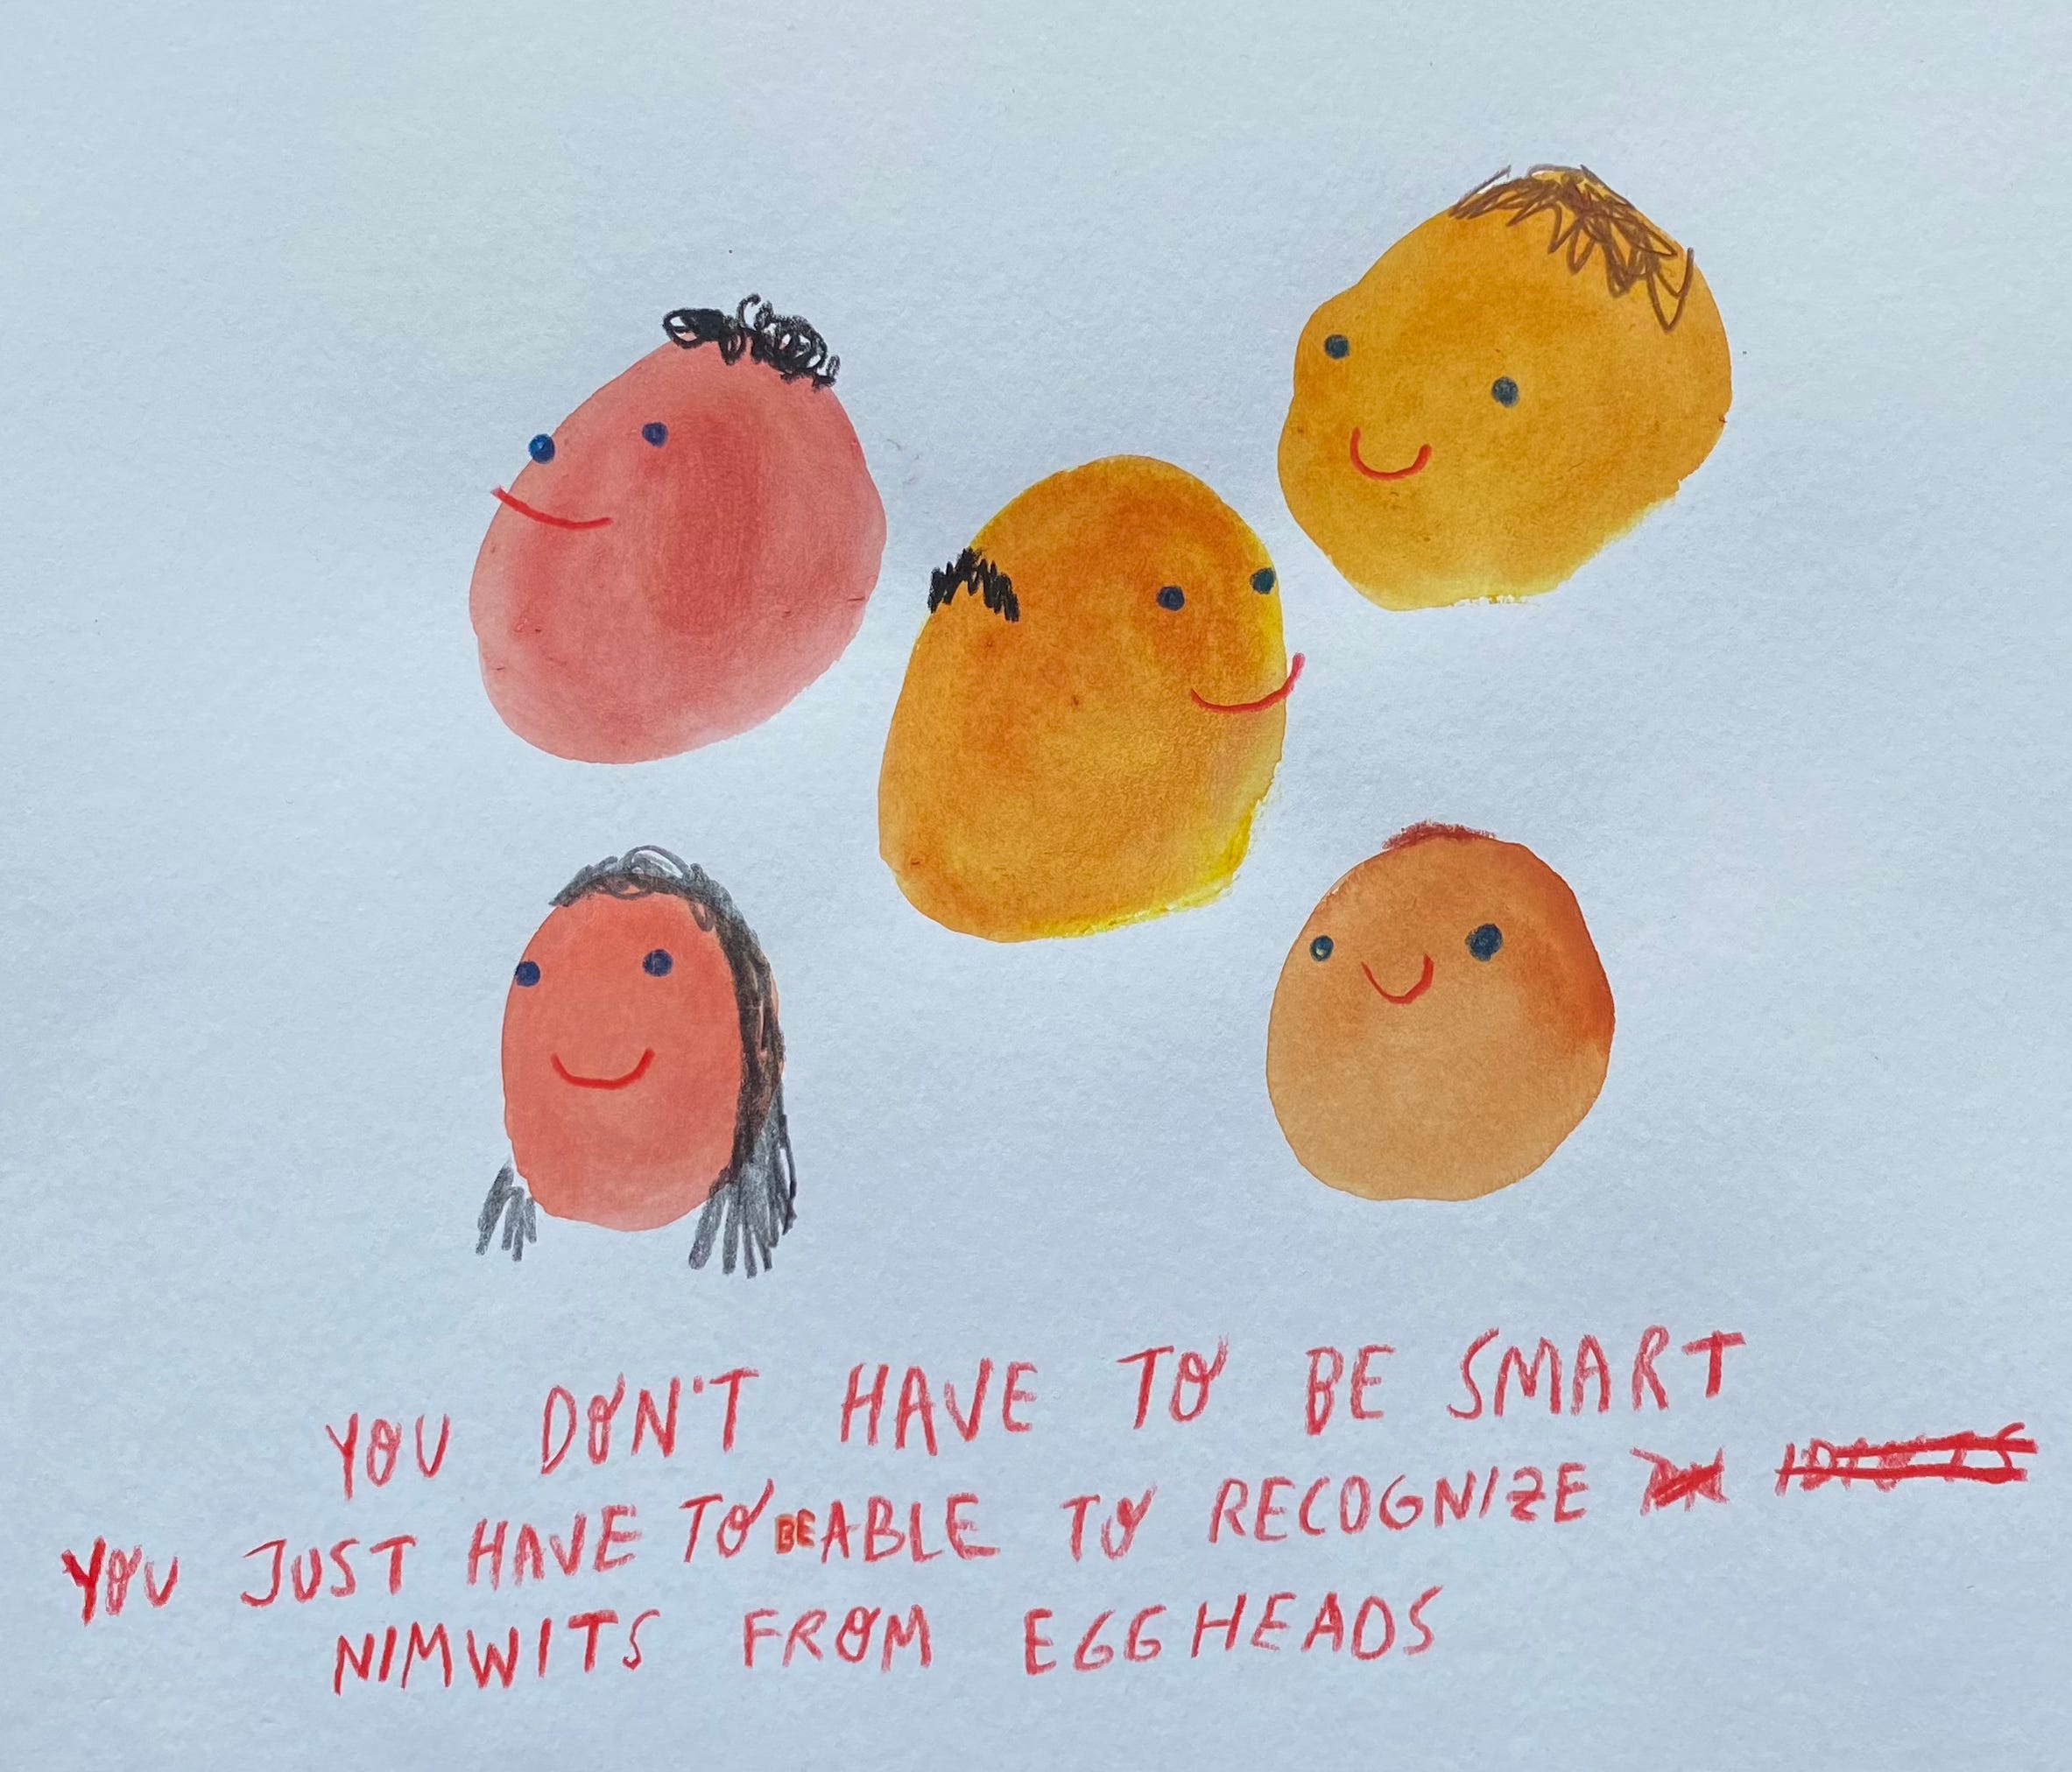 YOU DON'T HAVE TO BE SMART
YOU JUST HAVE TO BE ABLE TO RECOGNIZE
NIMWITS FROM EGGHEADS